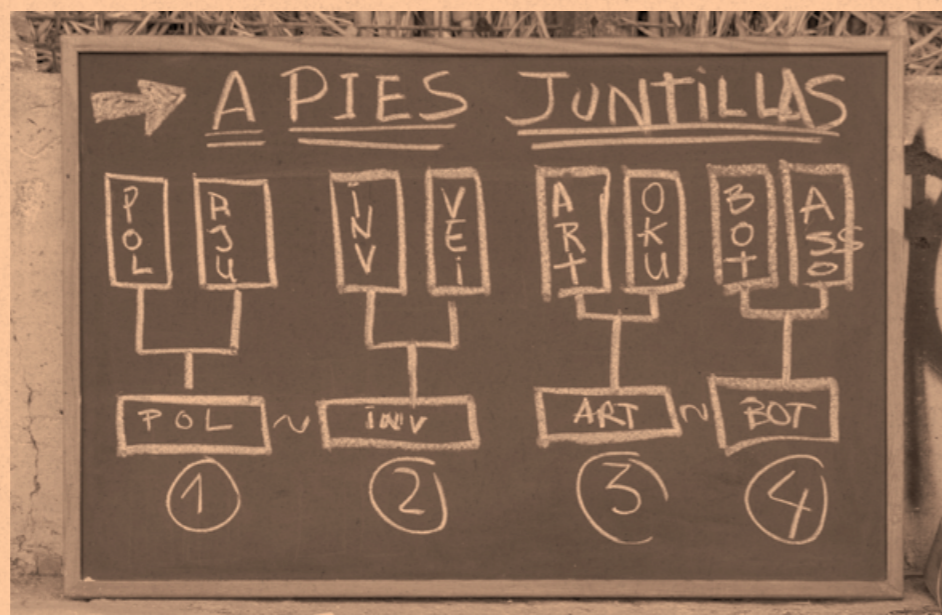 A PIES JUNTILLAS
POL RJU INV VEI ART OKU BOT ASSO
POL ~ INV ART ~ BOT
1 2 3 4